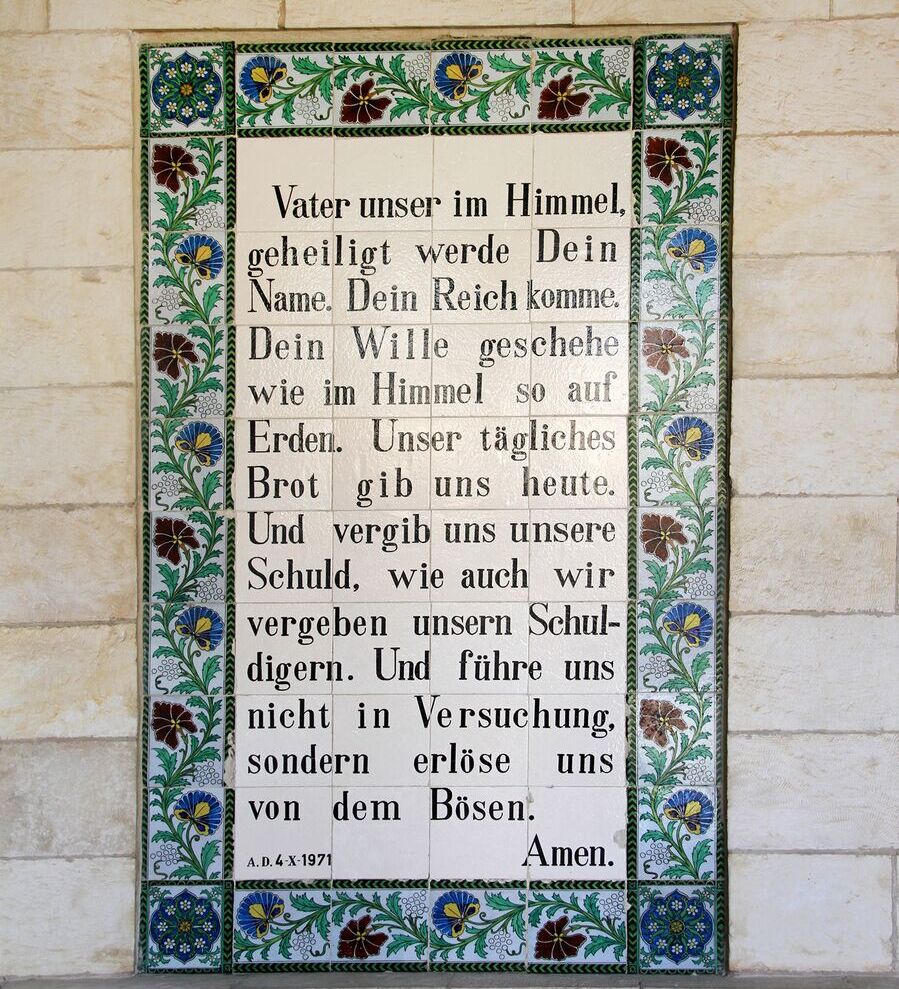 Vater unser im Himmel,
geheiligt werde Dein
Name. Dein Reich komme.
Dein Wille geschehe
wie im Himmel so auf
Erden. Unser tägliches
Brot gib uns heute.
Und vergib uns unsere
Schuld, wie auch wir
vergeben unsern Schul-
digern. Und führe uns
nicht in Versuchung,
sondern erlöse uns
von dem Bösen.
Amen.
A.D. 4-X-1971